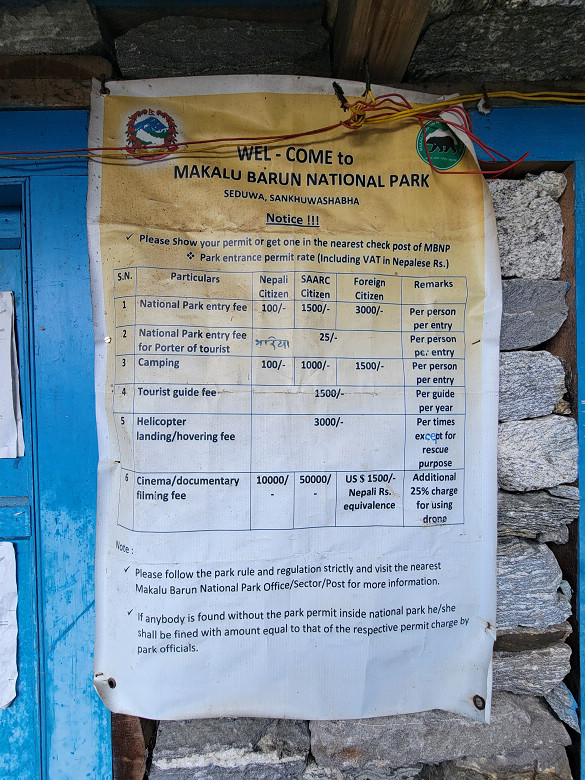 WEL - COME to
MAKALU BARUN NATIONAL PARK
SEDUWA, SANKHUWASHABHA
Notice !!!
✓ Please Show your permit or get one in the nearest check post of MBNP
❖ Park entrance permit rate (Including VAT in Nepalese Rs.)
S.N. Particulars Nepali Citizen SAARC Citizen Foreign Citizen Remarks
1 National Park entry fee 100/- 1500/- 3000/- Per person per entry
2 National Park entry fee for Porter of tourist 25/- Per person per entry
3 Camping 100/- 1000/- 1500/- Per person per entry
4 Tourist guide fee 1500/- Per guide per year
5 Helicopter landing/hovering fee 3000/- Per times except for rescue purpose
6 Cinema/documentary filming fee 10000/- 50000/- US $ 1500/- Nepali Rs. equivalence Additional 25% charge for using drone
Note :
✓ Please follow the park rule and regulation strictly and visit the nearest
Makalu Barun National Park Office/Sector/Post for more information.
✓ If anybody is found without the park permit inside national park he/she
shall be fined with amount equal to that of the respective permit charge by
park officials.